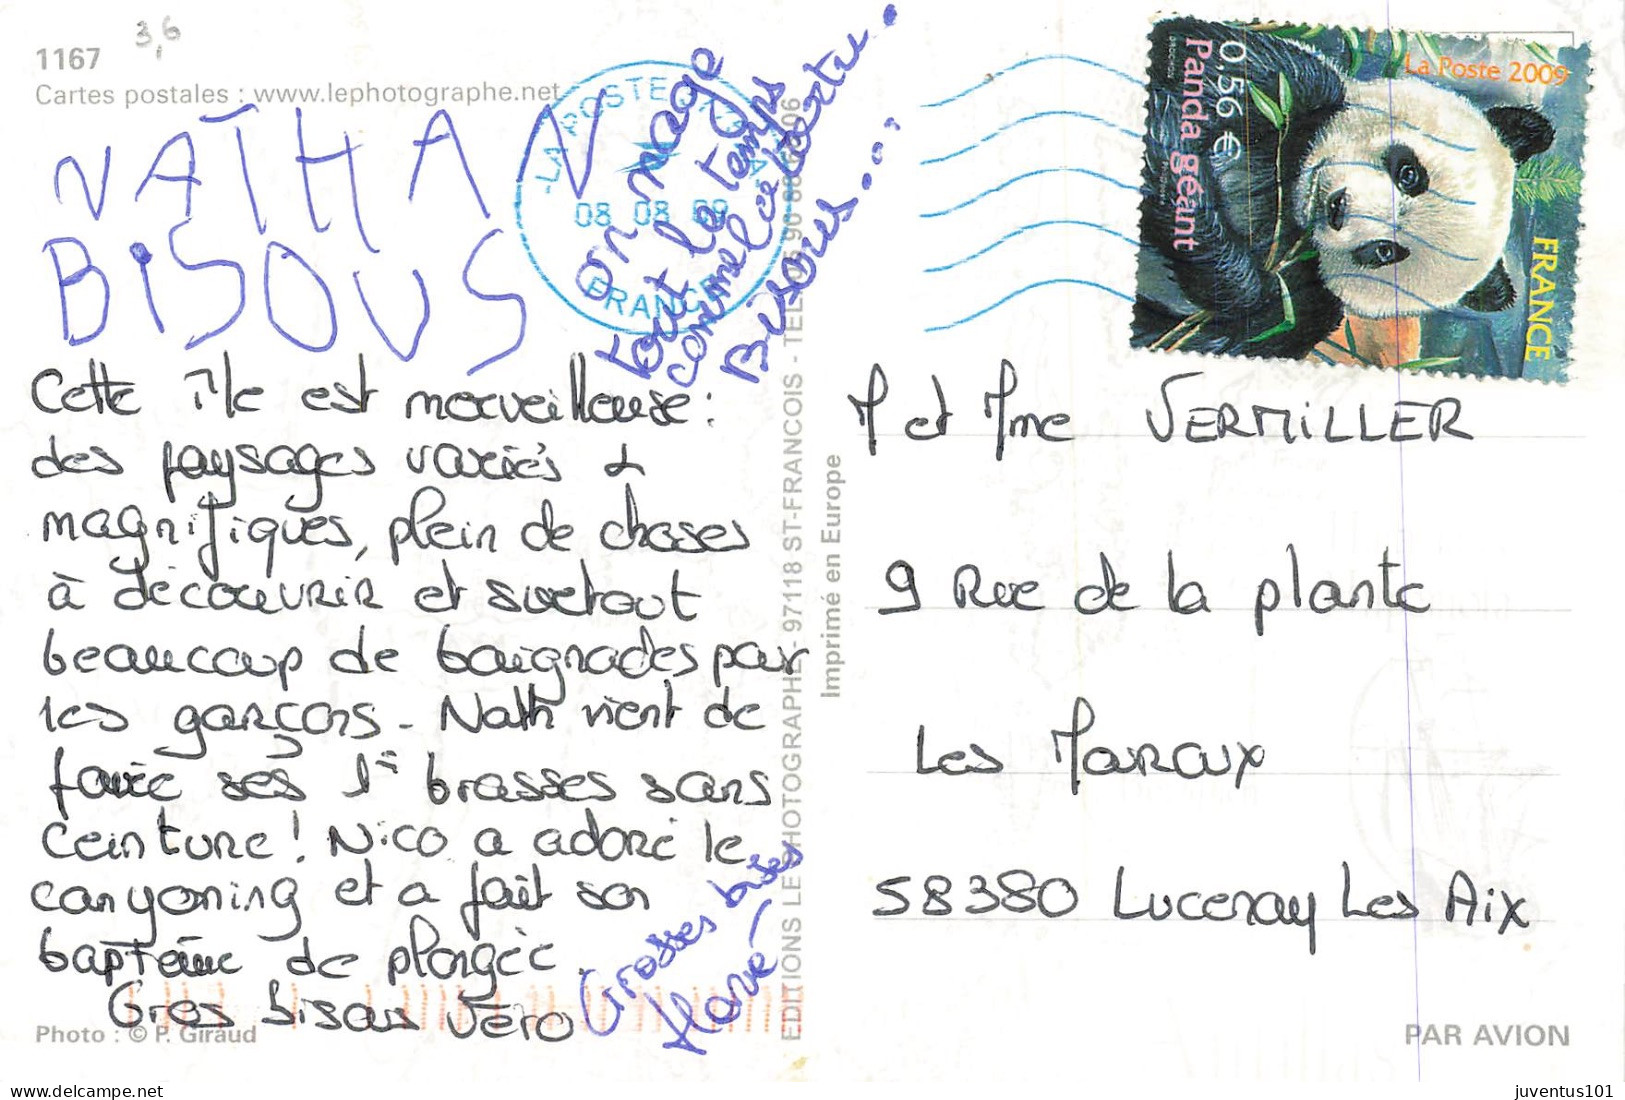 3,6
1167
Cartes postales : www.lephotographe.net
NATHAN
BISOUS
on nage
tout le temps
comme la tortu.
Bisous....
Cette île est merveilleuse :
des paysages variés &
magnifiques, plein de choses
à découvrir et surtout
beaucoup de baignades par
les garçons - Nath vient de
faire ses 1è brasses sans
ceinture ! Nico a adoré le
canyoning et a fait son
baptême de plongée.
Gros bisous Vero
Grosses bises
Photo : © P. Giraud
LA POSTE
08 08 09
FRANCE
EDITIONS LE PHOTOGRAPHE - 97118 ST-FRANCOIS - TEL
Imprimé en Europe
La Poste 2009
0,56 €
Panda géant
FRANCE
M et Mme VERMILLER
9 Rue de la plante
Les Maraux
58380 Lucenay Les Aix
PAR AVION
juventus101